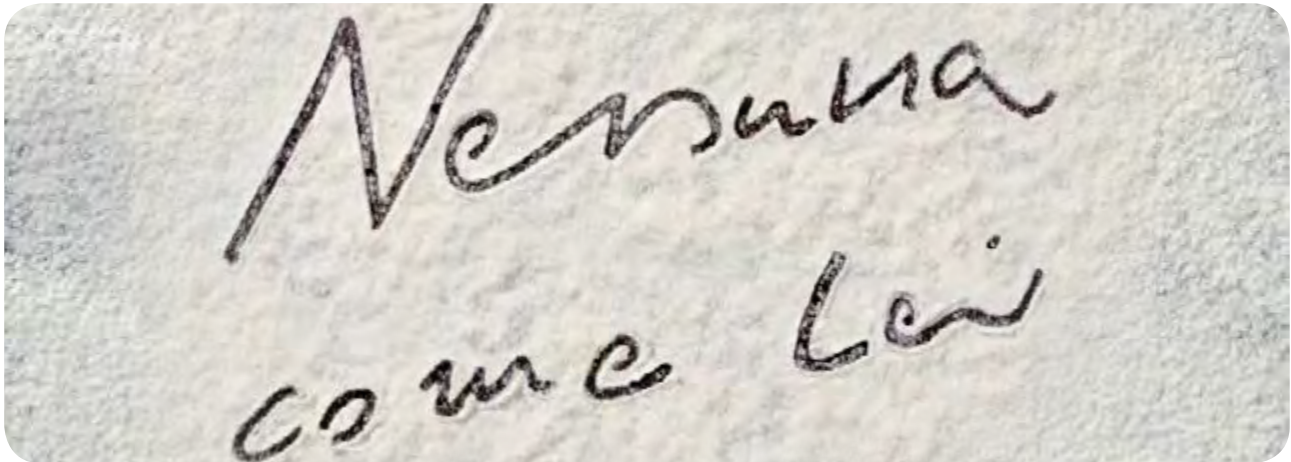 Nessuna
come Lei